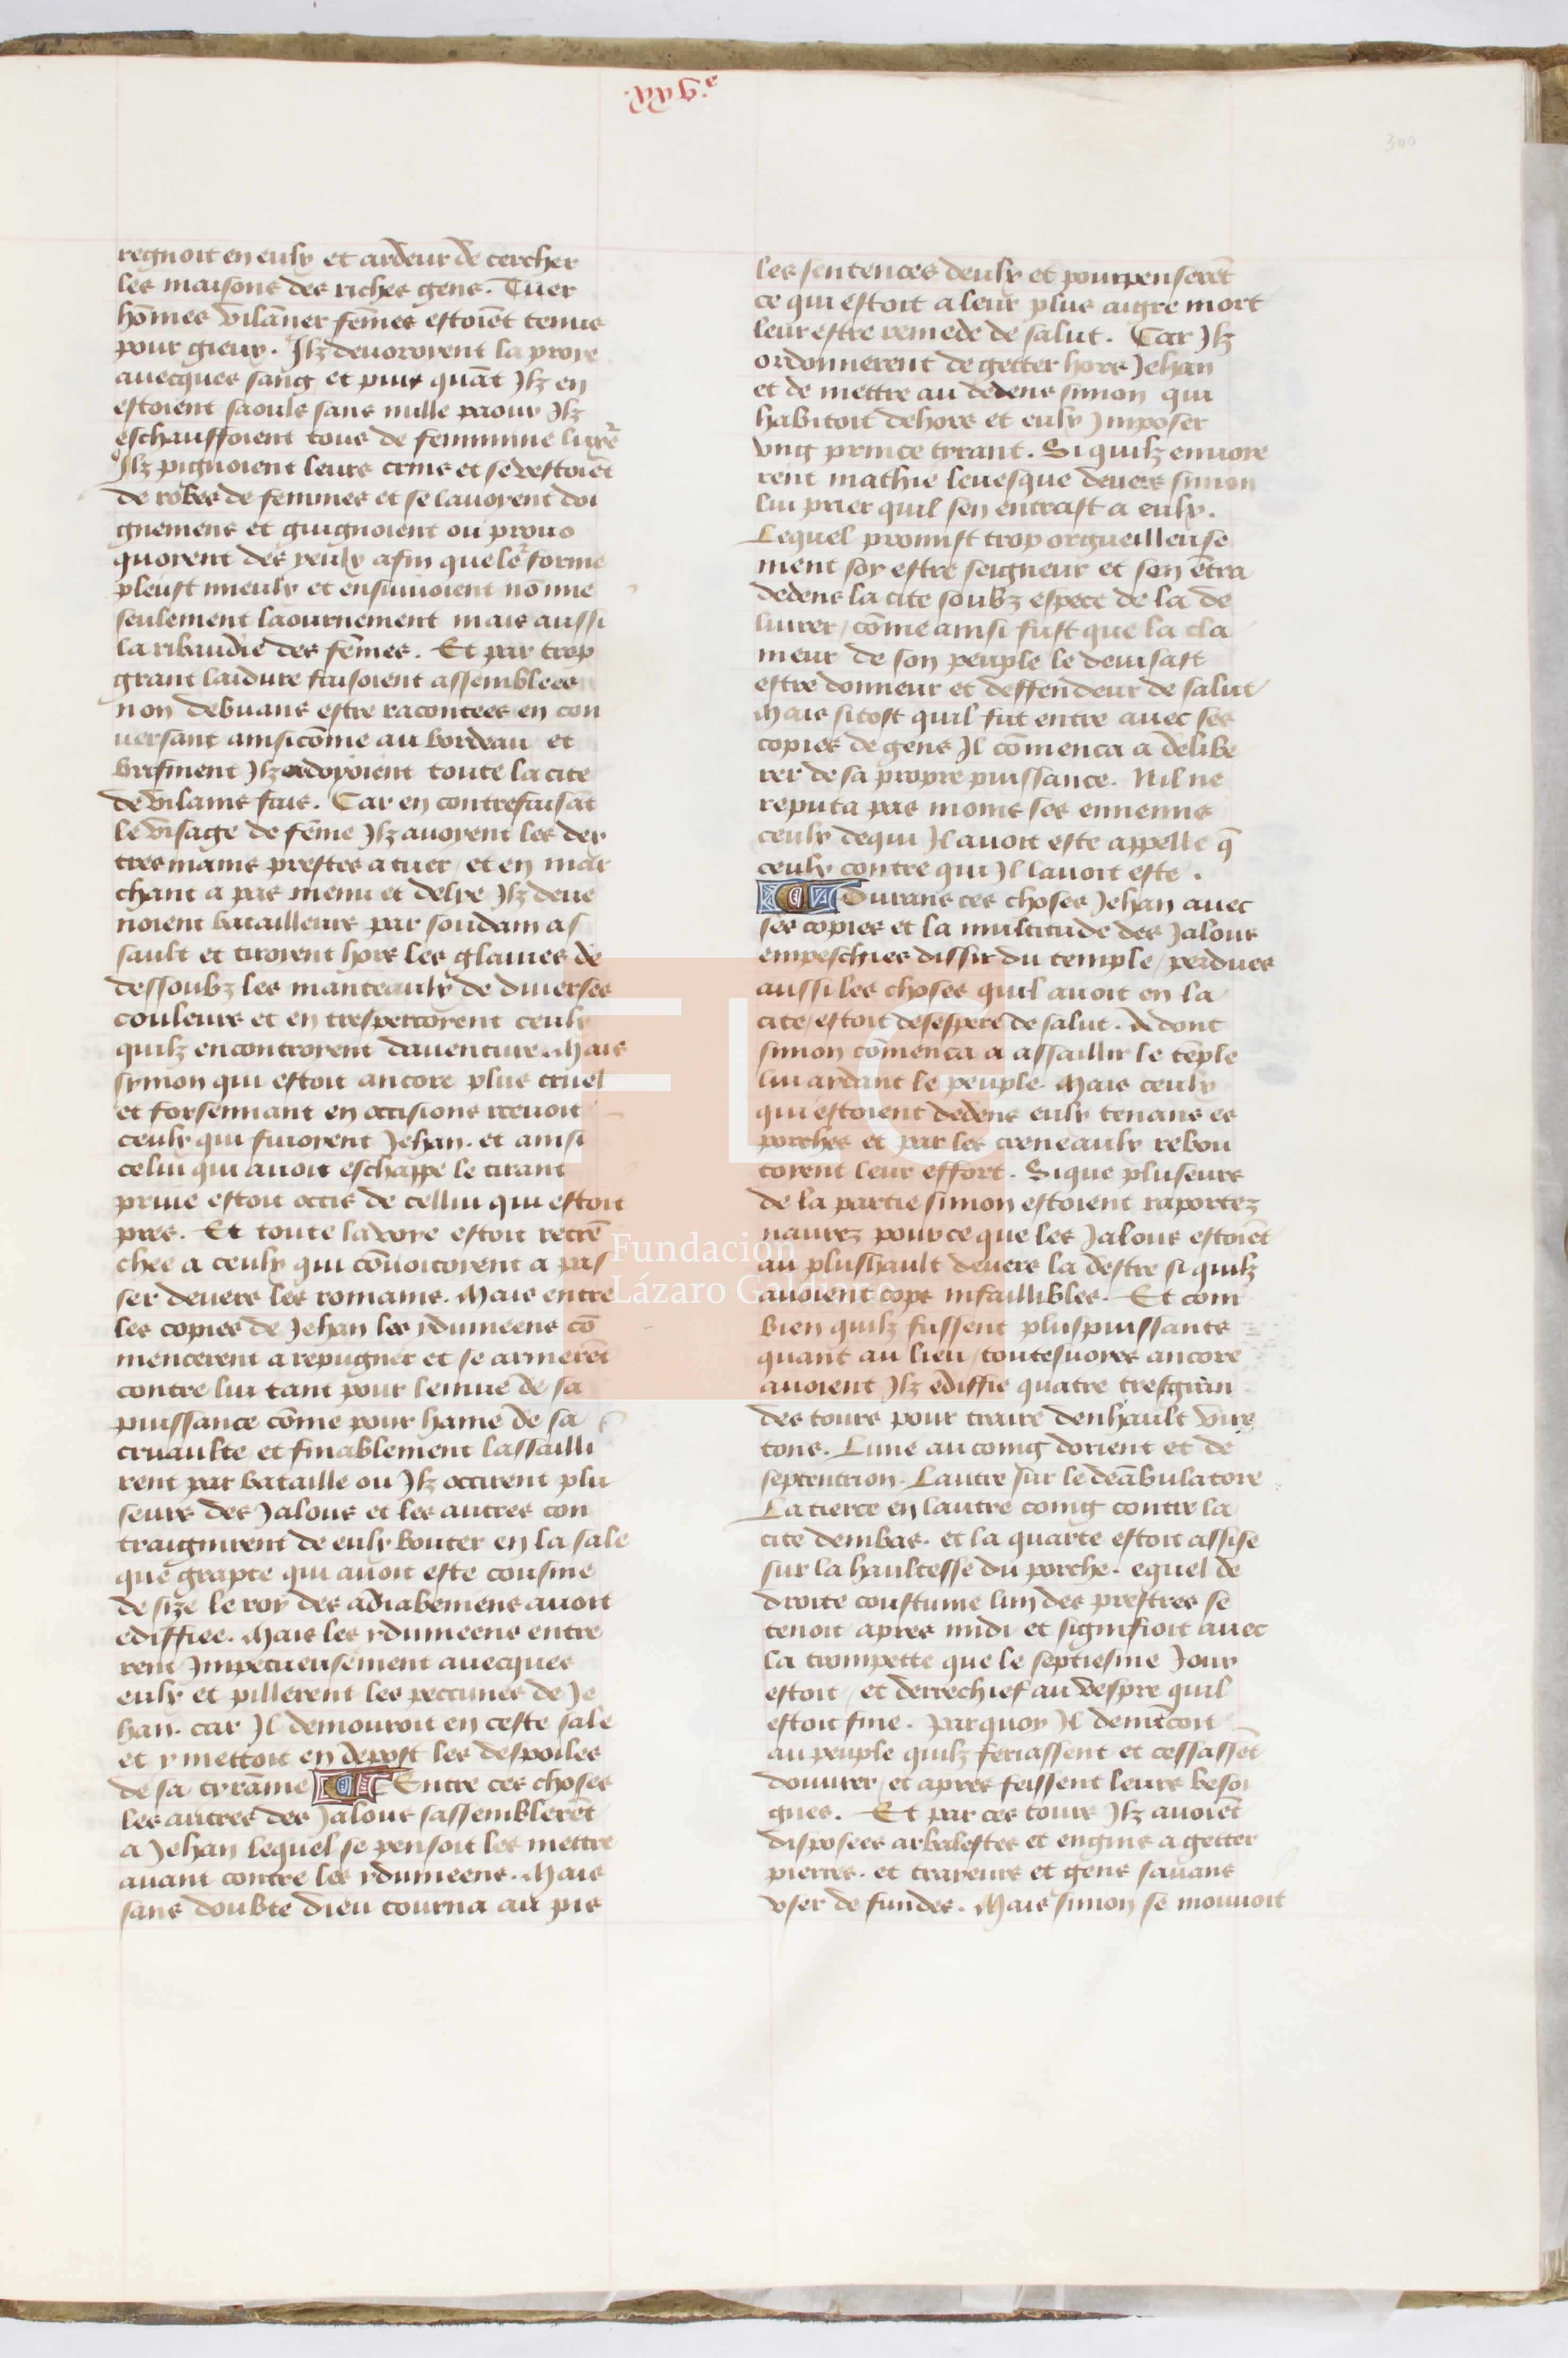 300
regnoit en eulx et ardeur de cercher
les maisons des riches gens. Tuer
hōmes vilāner fēmes estoiēt tenus
pour gieux. Ilz devoroyent la proye
avecques sang et puis quāt Ilz en
estoient saoulz sans nulle paour Ilz
eschauffoient tous de feminine
Ilz pignoient leurs crins et se vestoiēt
de robes de femmes et se lavoyent doi
gnemens et guignoient ou provo
quoyent des yeulx afin que lēr forme
pleust mieulx et ensuivoient nō mie
seulement laournement mais aussi
la ribaudie des fēmes. Et par trop
grant laidure faisoient assemblees
non debvans estre racontees en con
versant ainsi cōme au bordeau et
briefment Ilz ordoyoient toute la cite
de vilains fais. Car en contrefaisāt
le visage de fēme Ilz avoyent les dex
tres mains prestes a tuer / et en mar
chant a pas menu et delye Ilz deve
noient batailleurs par soudain as
sault et tiroyent hors les glaives de
dessoubz les manteaulx de diverses
couleurs et en trespercoyent ceulx
quilz encontroyent daventure. Mais
symon qui estoit ancore plus cruel
et forsennant en occisions recevoit
ceulx qui fuioyent Jehan. et ainsi
celui qui avoit eschappe le tirant
prive estoit occis de cellui qui estoit
pres. Et toute la voye estoit retrē
chee a ceulx qui cōvoitoyent a pas
ser devers les romains. Mais entre
les copies de Jehan les ydumeens cō
mencerent a repugner et se armerēt
contre lui tant pour lenvie de sa
puissance cōme pour haine de sa
cruaulte et finablement lassailli
rent par bataille ou Ilz occirent plu
seurs des Jalous et les autres con
traignirent de eulx bouter en la sale
que grapte qui avoit este cousine
de size le roy des adiabeniens avoit
ediffiee. Mais les ydumeens entre
rent Impetueusement avecques
eulx et pillerent les peccunes de Je
han. car Il demouroit en ceste sale
et y mettoit en depost les despoiles
de sa tyrānie Entre ces choses
les autres des Jalous sassemblerēt
a Jehan lequel se pensoit les mettre
avant contre les ydumeens. Mais
sans doubte dieu tourna au pis
les sentences deulx et pourpenserēt
ce qui estoit a leur plus aigre mort
leur estre remede de salut. Car Ilz
ordonnerent de getter hors Jehan
et de mettre au dedens simon qui
habitoit dehors et eulx Imposer
ung prince tyrant. Si quilz envoye
rent mathie levesque devers simon
lui prier quil sen entrast a eulx.
Lequel promist trop orgueilleuse
ment soy estre seigneur et sen ētra
dedens la cite soubz espece de la de
livrer / cōme ainsi fust que la cla
meur de son peuple le devisast
estre donneur et deffendeur de salut
Mais sitost quil fut entre avec ses
copies de gens Il cōmenca a delibe
rer de sa propre puissance. Nil ne
reputa pas moins ses ennemis
ceulx dequi Il avoit este appelle q̄
ceulx contre qui Il lavoit este.
Durans ces choses Jehan avec
ses copies et la multitude des Jalous
empeschies dissir du temple / perdues
aussi les choses quil avoit en la
cite / estoit desespere de salut. Adont
simon cōmenca a assaillir le tēple
lui ardant le peuple. Mais ceulx
qui estoient dedens eulx tenans es
porches et par les creneaulx rebou
toyent leur effort. Sique pluseurs
de la partie simon estoient raportez
navrez pource que les Jalous estoiēt
au plushault devers la destre si quilz
avoient cops infaillibles. Et com
bien quilz fussent pluspuissans
quant au lieu / toutesvoyes ancore
avoient Ilz ediffie quatre tresgran
des tours pour traire denhault vire
tons. Lune au coing dorient et de
septentrion. Lautre sur le deābulatore
La tierce en lautre coing contre la
cite dembas. et la quarte estoit assise
sur la haultesse du porche. equel de
droite coustume lun des prestres se
tenoit apres midi et signifioit avec
la trompette que le septiesme Jour
estoit / et derrechief au vespre quil
estoit fine. Parquoy Il denūcoit
au peuple quilz feriassent et cessassēt
douvrer / et apres feissent leurs besoi
gnes. Et par ces tours Ilz avoiēt
disposees arbalestes et engins a getter
pierres. et trayeurs et gens savans
user de fundes. Mais simon se mouvoit
Fundación
Lázaro Galdiano